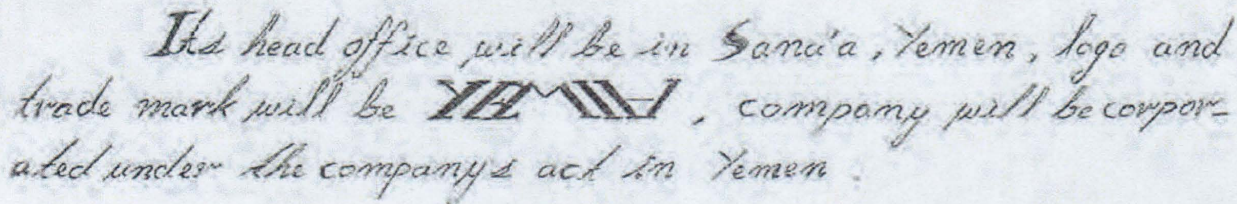 Its head office will be in Sana'a, Yemen, logo and
trade mark will be , company will be corpor-
ated under the companys act in Yemen.